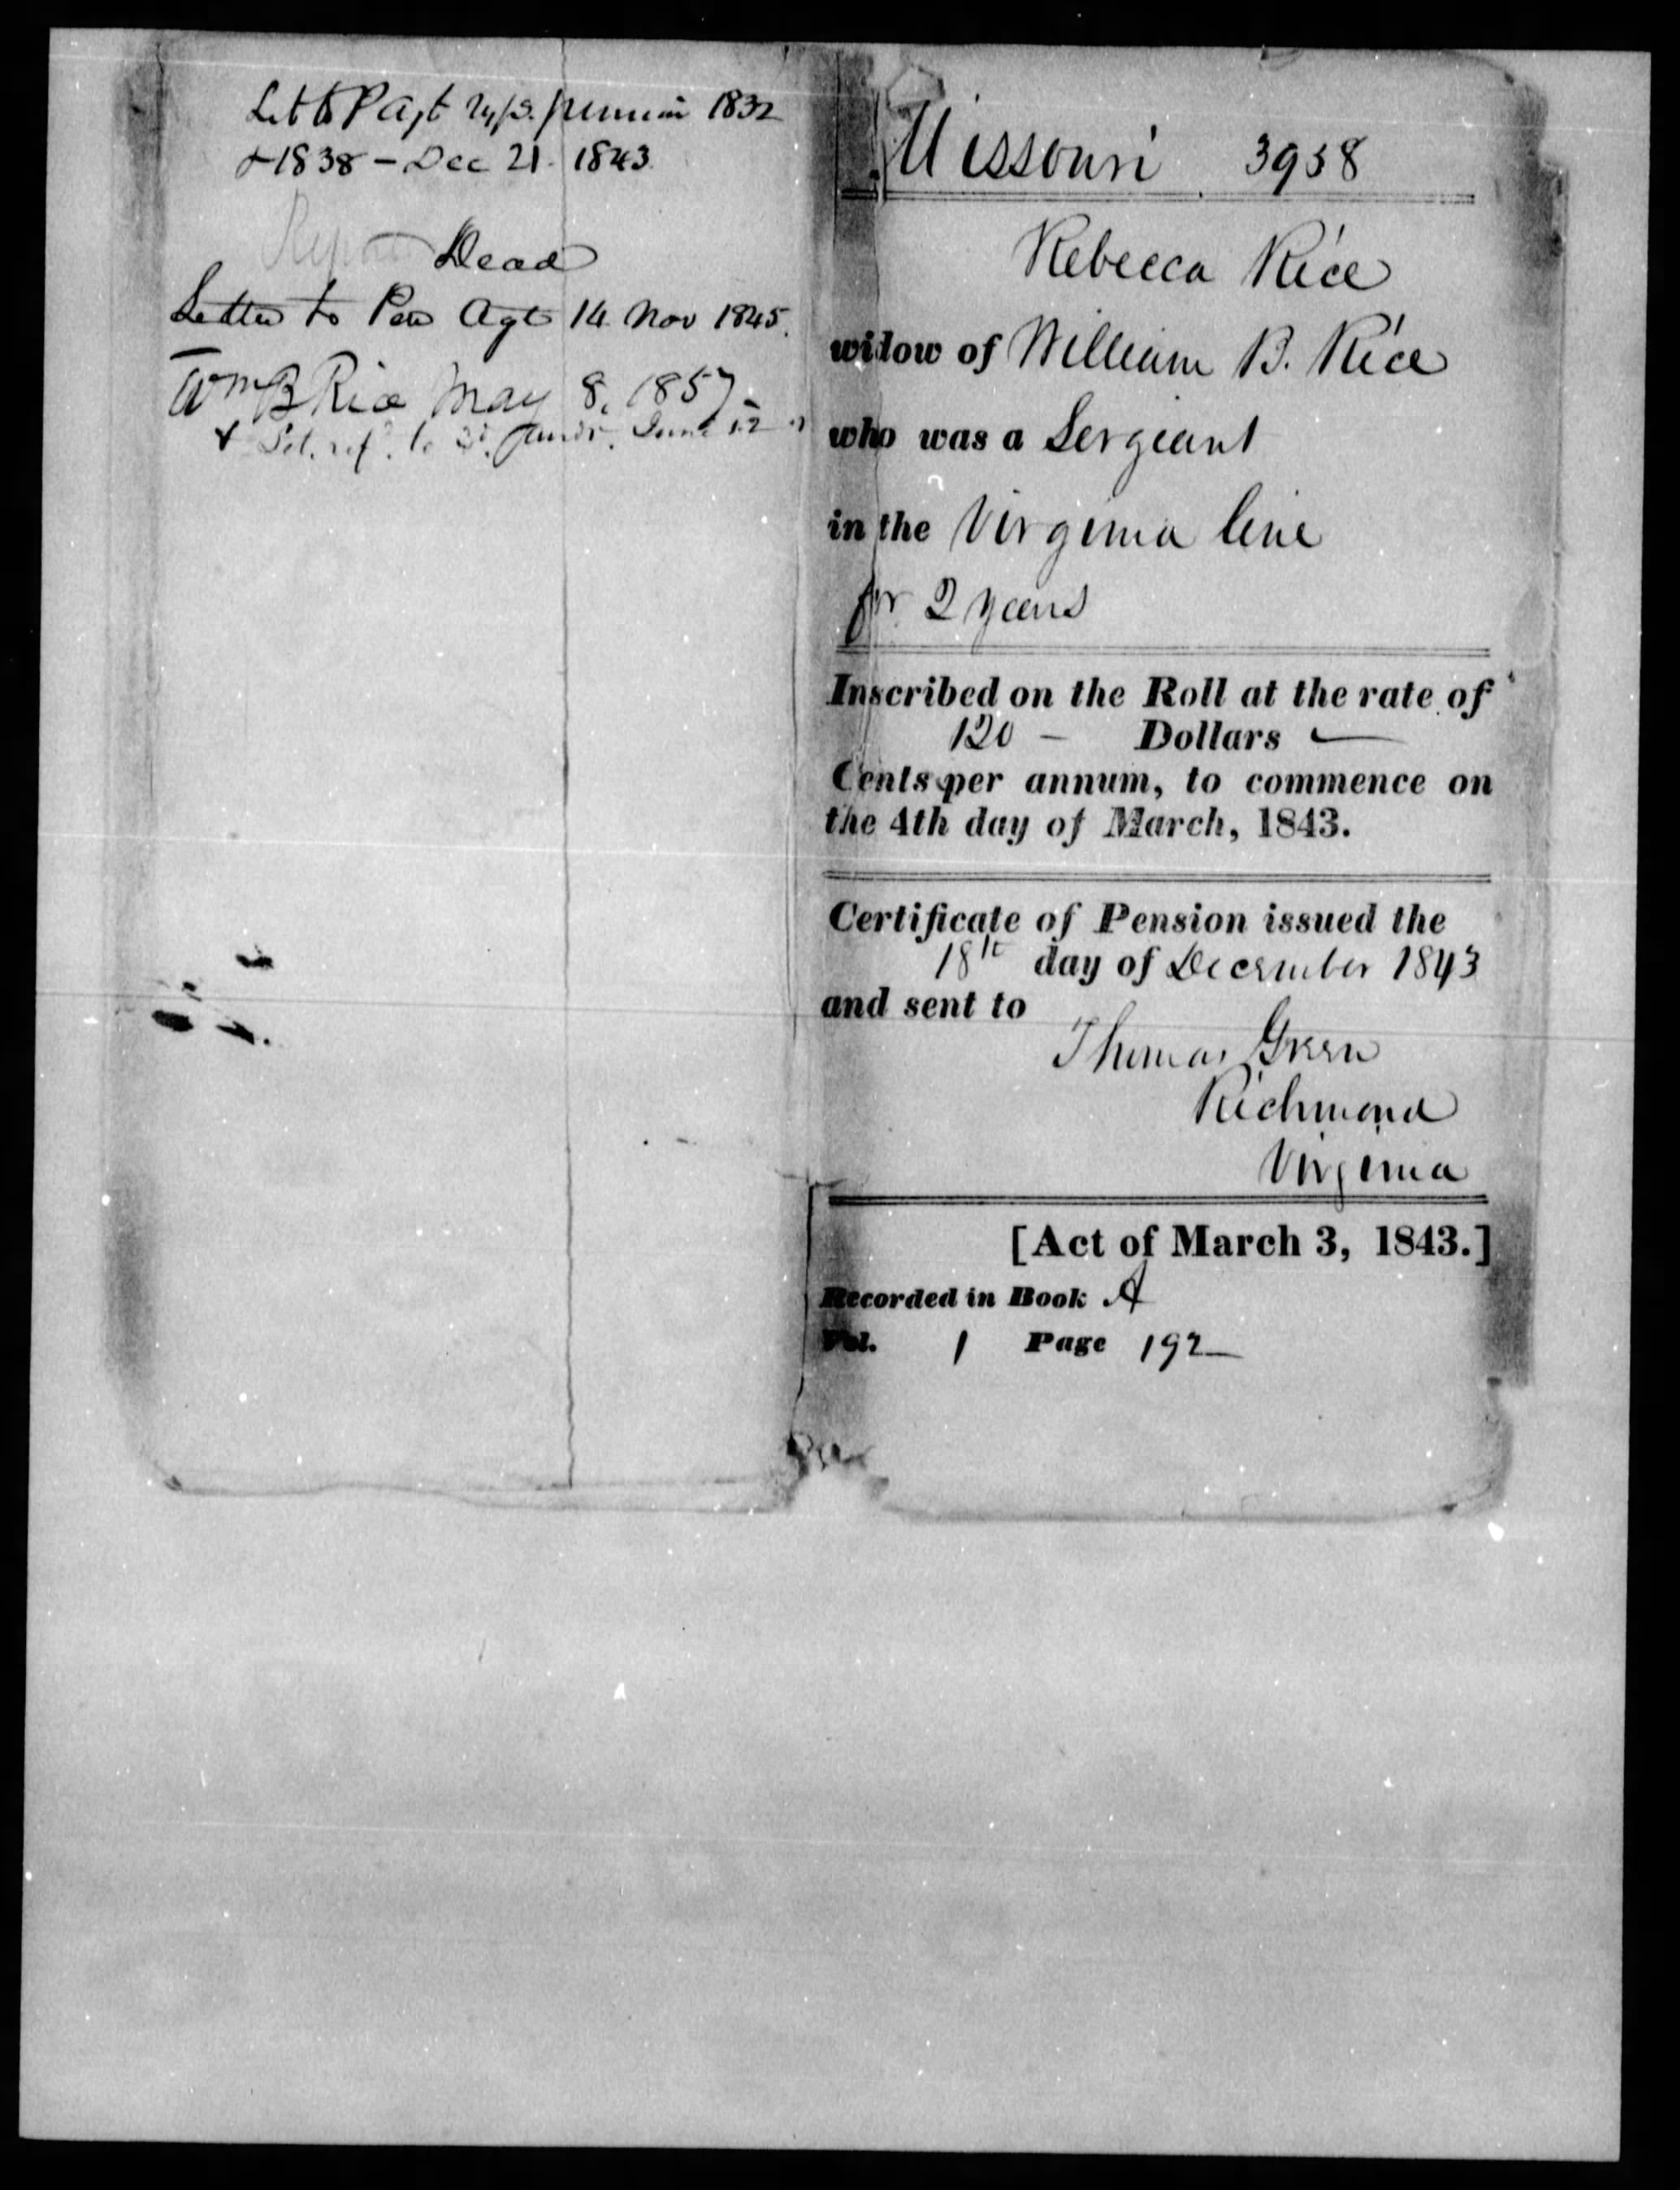 Let to P Agt
pension 1832
& 1838 - Dec 21. 1843
Dead
Letter to Pen Agt 14 Nov 1845.
Wm B Rice May 8, 1857.
& June 12
Missouri 3958
Rebecca Rice
widow of William B. Rice
who was a Sergeant
in the Virginia line
for 2 years
Inscribed on the Roll at the rate of
120 - Dollars -
Cents per annum, to commence on
the 4th day of March, 1843.
Certificate of Pension issued the
18th day of December 1843
and sent to
Thomas Green
Richmond
Virginia
[Act of March 3, 1843.]
Recorded in Book A
Vol. 1 Page 192